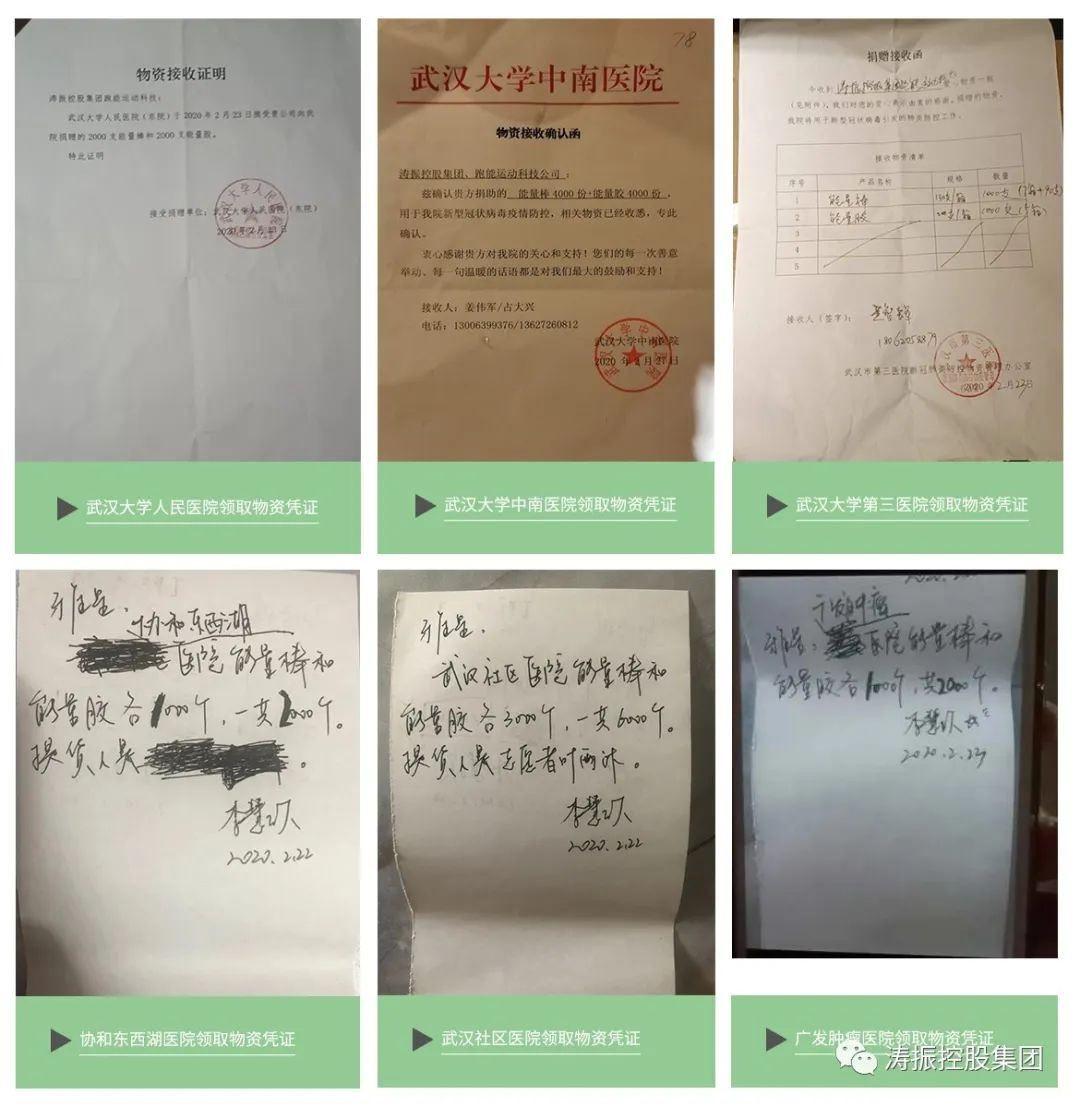 物资接收证明
涛振控股集团跑能运动科技：
武汉大学人民医院（东院）于2020年2月23日接受贵公司向我
院捐赠的2000支能量棒和2000支能量胶。
特此证明
接受捐赠单位：武汉大学人民医院（东院）
2020年2月23日
武汉大学人民医院领取物资凭证
78
武汉大学中南医院
物资接收确认函
涛振控股集团、跑能运动科技公司：
兹确认贵方捐助的 能量棒4000份+能量胶4000份，
用于我院新型冠状病毒疫情防控，相关物资已经收悉，专此
确认。
衷心感谢贵方对我院的关心和支持！您们的每一次善意
举动、每一句温暖的话语都是对我们最大的鼓励和支持！
接收人：姜伟军/占大兴
电话：13006399376/13627260812
武汉大学中南医院
2020年2月27日
武汉大学中南医院领取物资凭证
捐赠接收函
今收到
（见附件），我们对您的爱心表示由衷的感谢。捐赠的物资，
我院将用于新型冠状病毒引发的肺炎防控工作。
接收物资清单
序号 产品名称 规格 数量
1 能量棒 1000支
2 能量胶 1000支
3
4
5
接收人（签字）：
武汉市第三医院新冠肺炎防控物资管理办公室
2020年2月23日
武汉大学第三医院领取物资凭证
雅星，
协和东西湖
医院能量棒和
能量胶各1000个，一共2000个。
提货人是
2020.2.22
协和东西湖医院领取物资凭证
雅星，
武汉社区医院能量棒和
能量胶各3000个，一共6000个。
提货人是志愿者叶雨沐。
2020.2.22
武汉社区医院领取物资凭证
医院能量棒和
能量胶各1000个，共2000个。
广发肿瘤医院领取物资凭证
涛振控股集团